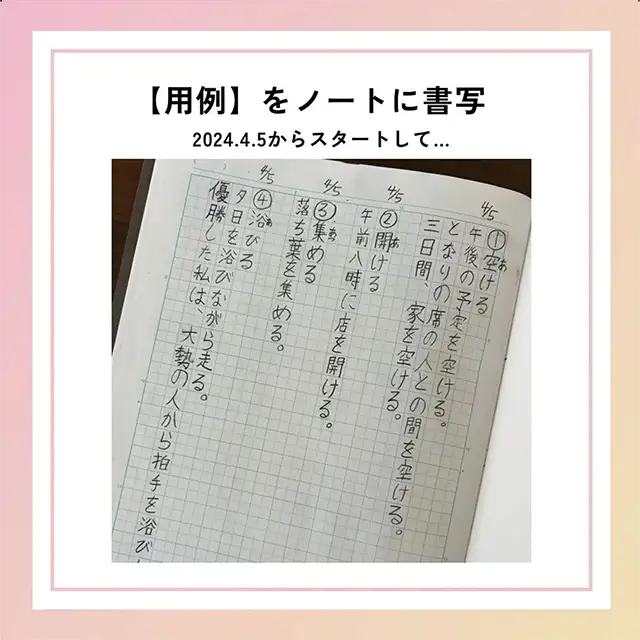 【用例】をノートに書写
2024.4.5からスタートして...
4/5
①空ける
あ
午後の予定を空ける。
となりの席の人との間を空ける。
三日間、家を空ける。
4/5
②開ける
あ
午前八時に店を開ける。
4/5
③集める
あ
落ち葉を集める。
4/5
④浴びる
あ
夕日を浴びながら走る。
優勝した私は、大勢の人から拍手を浴び